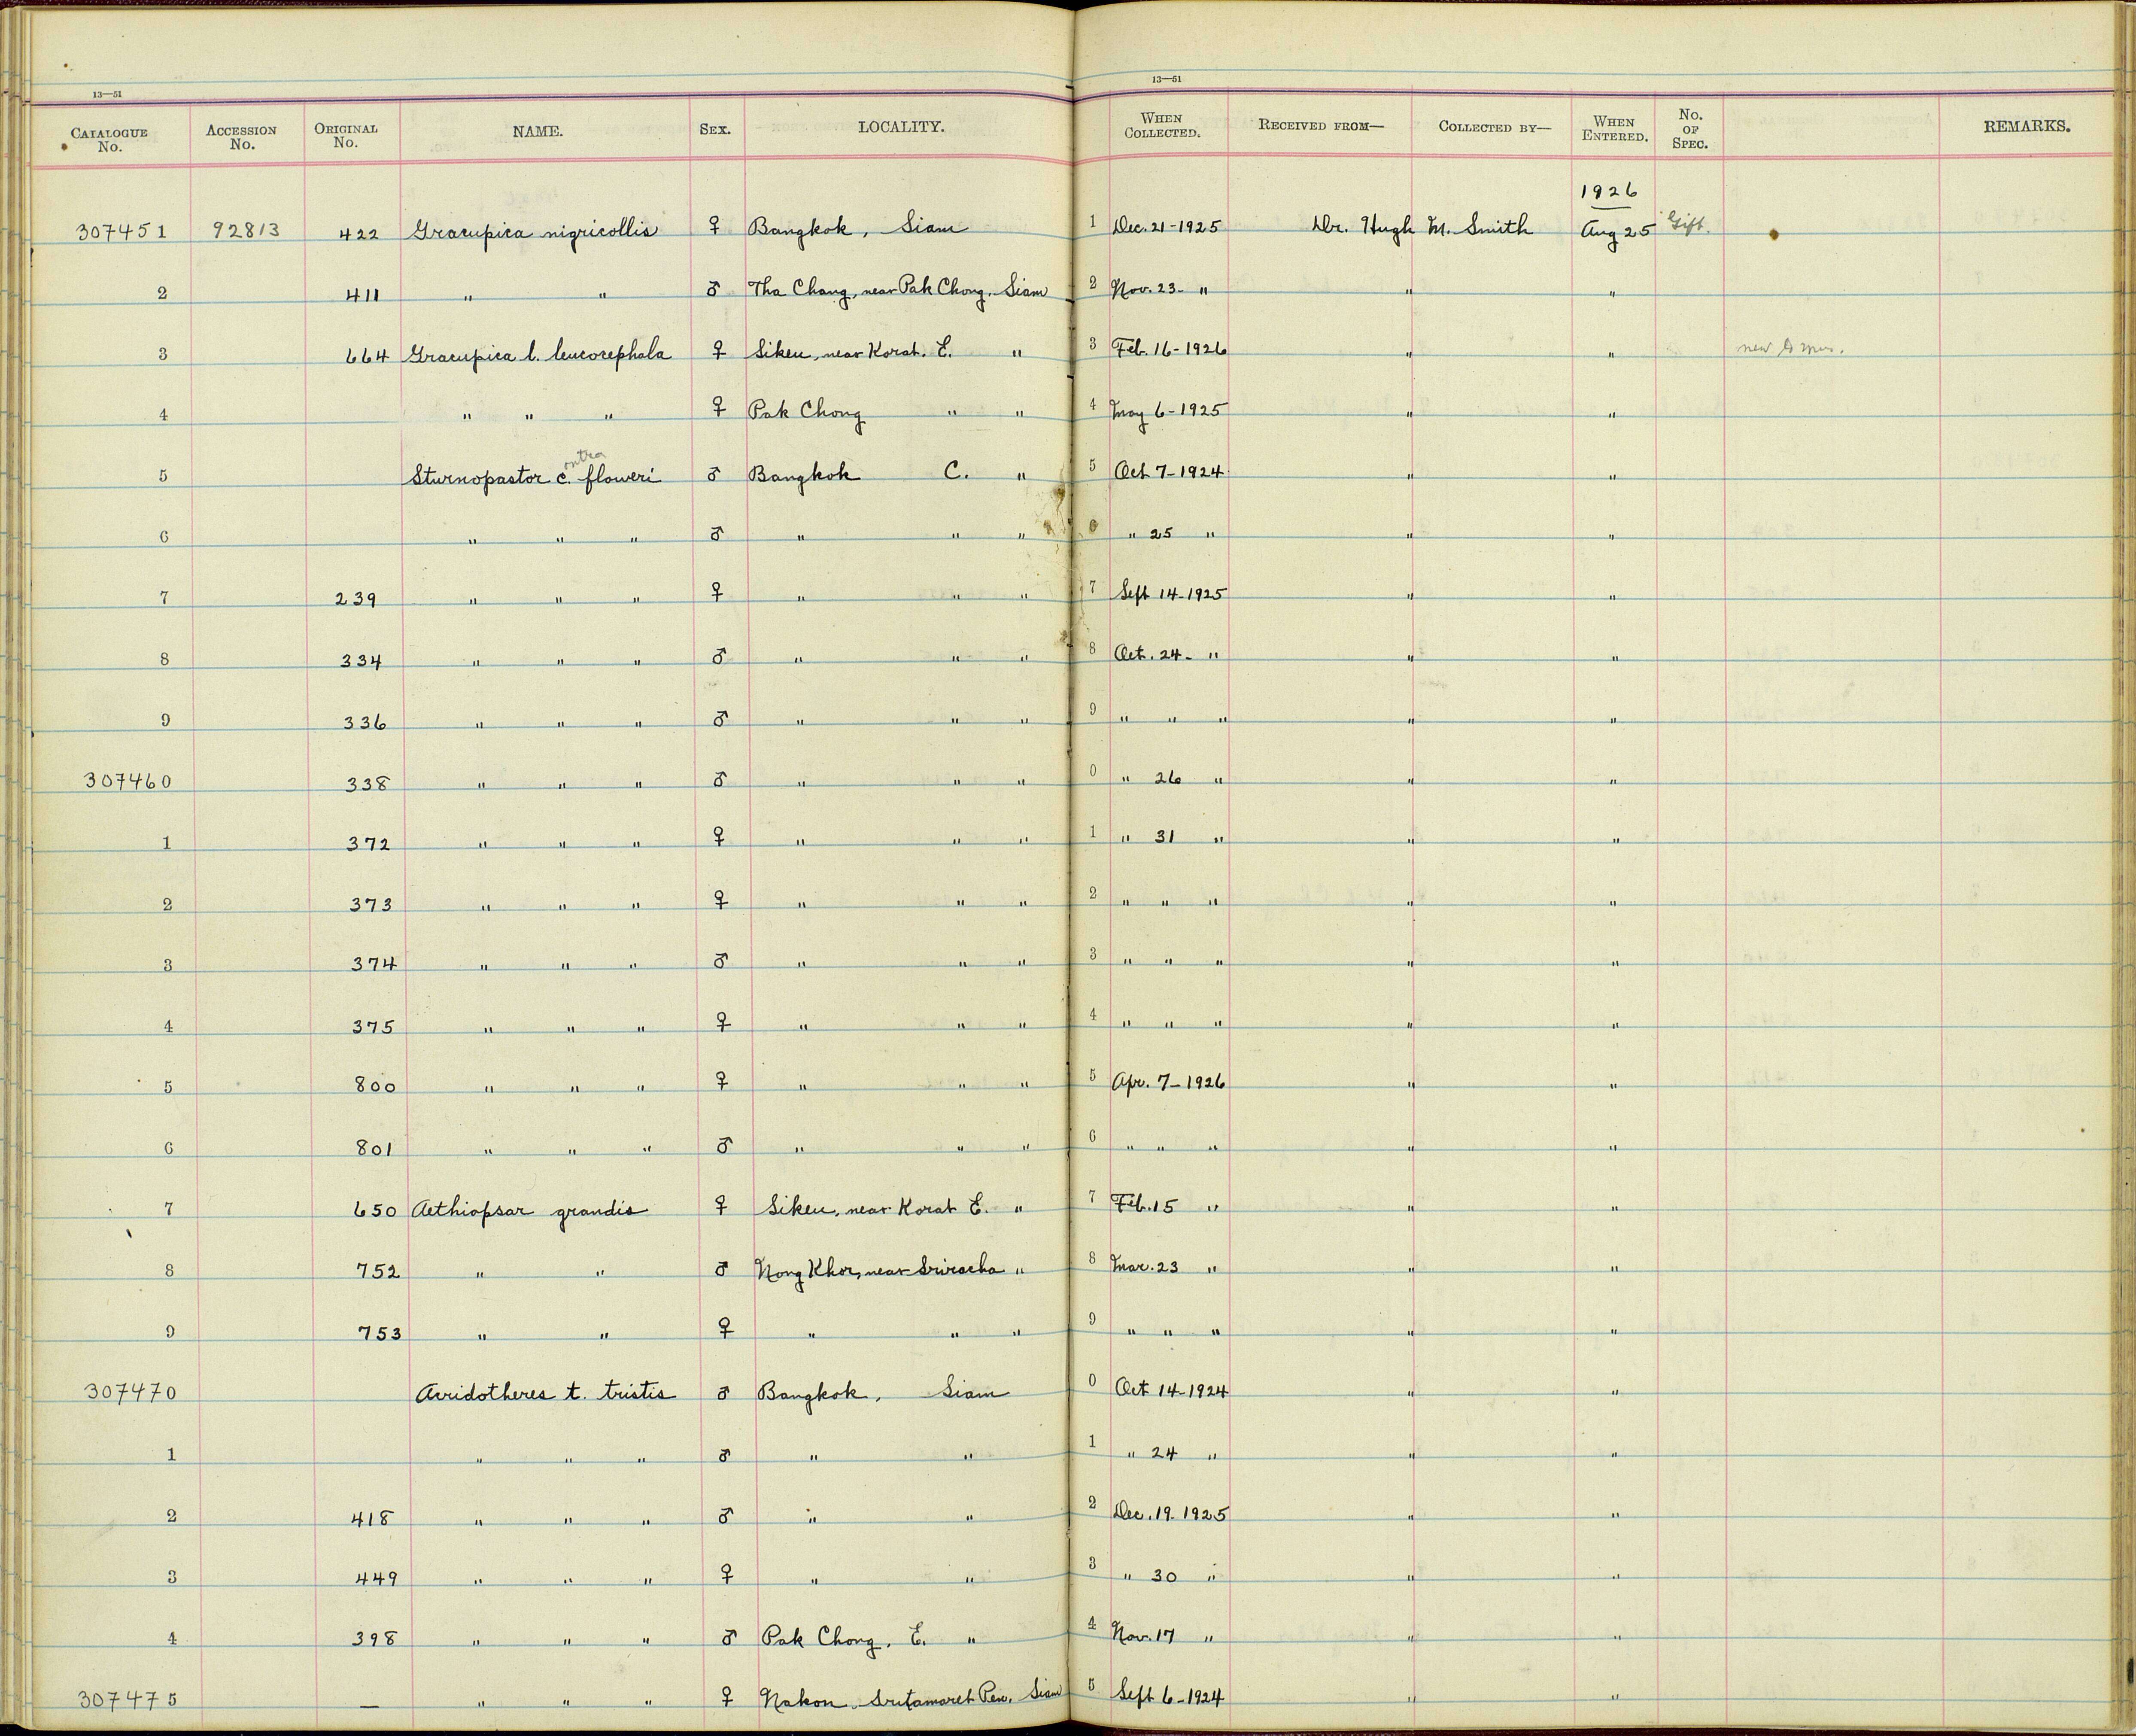 13—51 13—51
CATALOGUE No. ACCESSION No. ORIGINAL No. NAME. SEX. LOCALITY. WHEN COLLECTED. RECEIVED FROM— COLLECTED BY— WHEN ENTERED. No. OF SPEC. REMARKS.
1926
307451 92813 422 Gracupica nigricollis ♀ Bangkok, Siam 1 Dec. 21-1925 Dr. Hugh M. Smith Aug 25 Gift.
2 411 " " ♂ Tha Chang, near Pak Chong, Siam 2 Nov. 23- " " "
3 664 Gracupica l. leucocephala ♀ Sikeu, near Korat. E. " 3 Feb. 16-1926 " " new to mus.
4 " " " ♀ Pak Chong " " 4 May 6-1925 " "
5 Sturnopastor c. ontra floweri ♂ Bangkok C. " 5 Oct 7-1924 " "
6 " " " ♂ " " " 6 " 25 " " "
7 239 " " " ♀ " " " 7 Sept 14-1925 " "
8 334 " " " ♂ " " " 8 Oct. 24- " " "
9 336 " " " ♂ " " " 9 " " " " "
307460 338 " " " ♂ " " " 0 " 26 " " "
1 372 " " " ♀ " " " 1 " 31 " " "
2 373 " " " ♀ " " " 2 " " " " "
3 374 " " " ♂ " " " 3 " " " " "
4 375 " " " ♀ " " " 4 " " " " "
5 800 " " " ♀ " " " 5 Apr. 7-1926 " "
6 801 " " " ♂ " " " 6 " " " " "
7 650 Aethiopsar grandis ♀ Sikeu, near Korat E. " 7 Feb. 15 " " "
8 752 " " ♂ Nong Khor, near Sriracha " 8 Mar. 23 " " "
9 753 " " ♀ " " " 9 " " " " "
307470 Avridotheres t. tristis ♂ Bangkok, Siam 0 Oct 14-1924 " "
1 " " " ♂ " " 1 " 24 " " "
2 418 " " " ♂ " " 2 Dec. 19-1925 " "
3 449 " " " ♀ " " 3 " 30 " " "
4 398 " " " ♂ Pak Chong, E. " 4 Nov. 17 " " "
307475 — " " " ♀ Nakon Sritamaret Pen. Siam 5 Sept 6-1924 " "